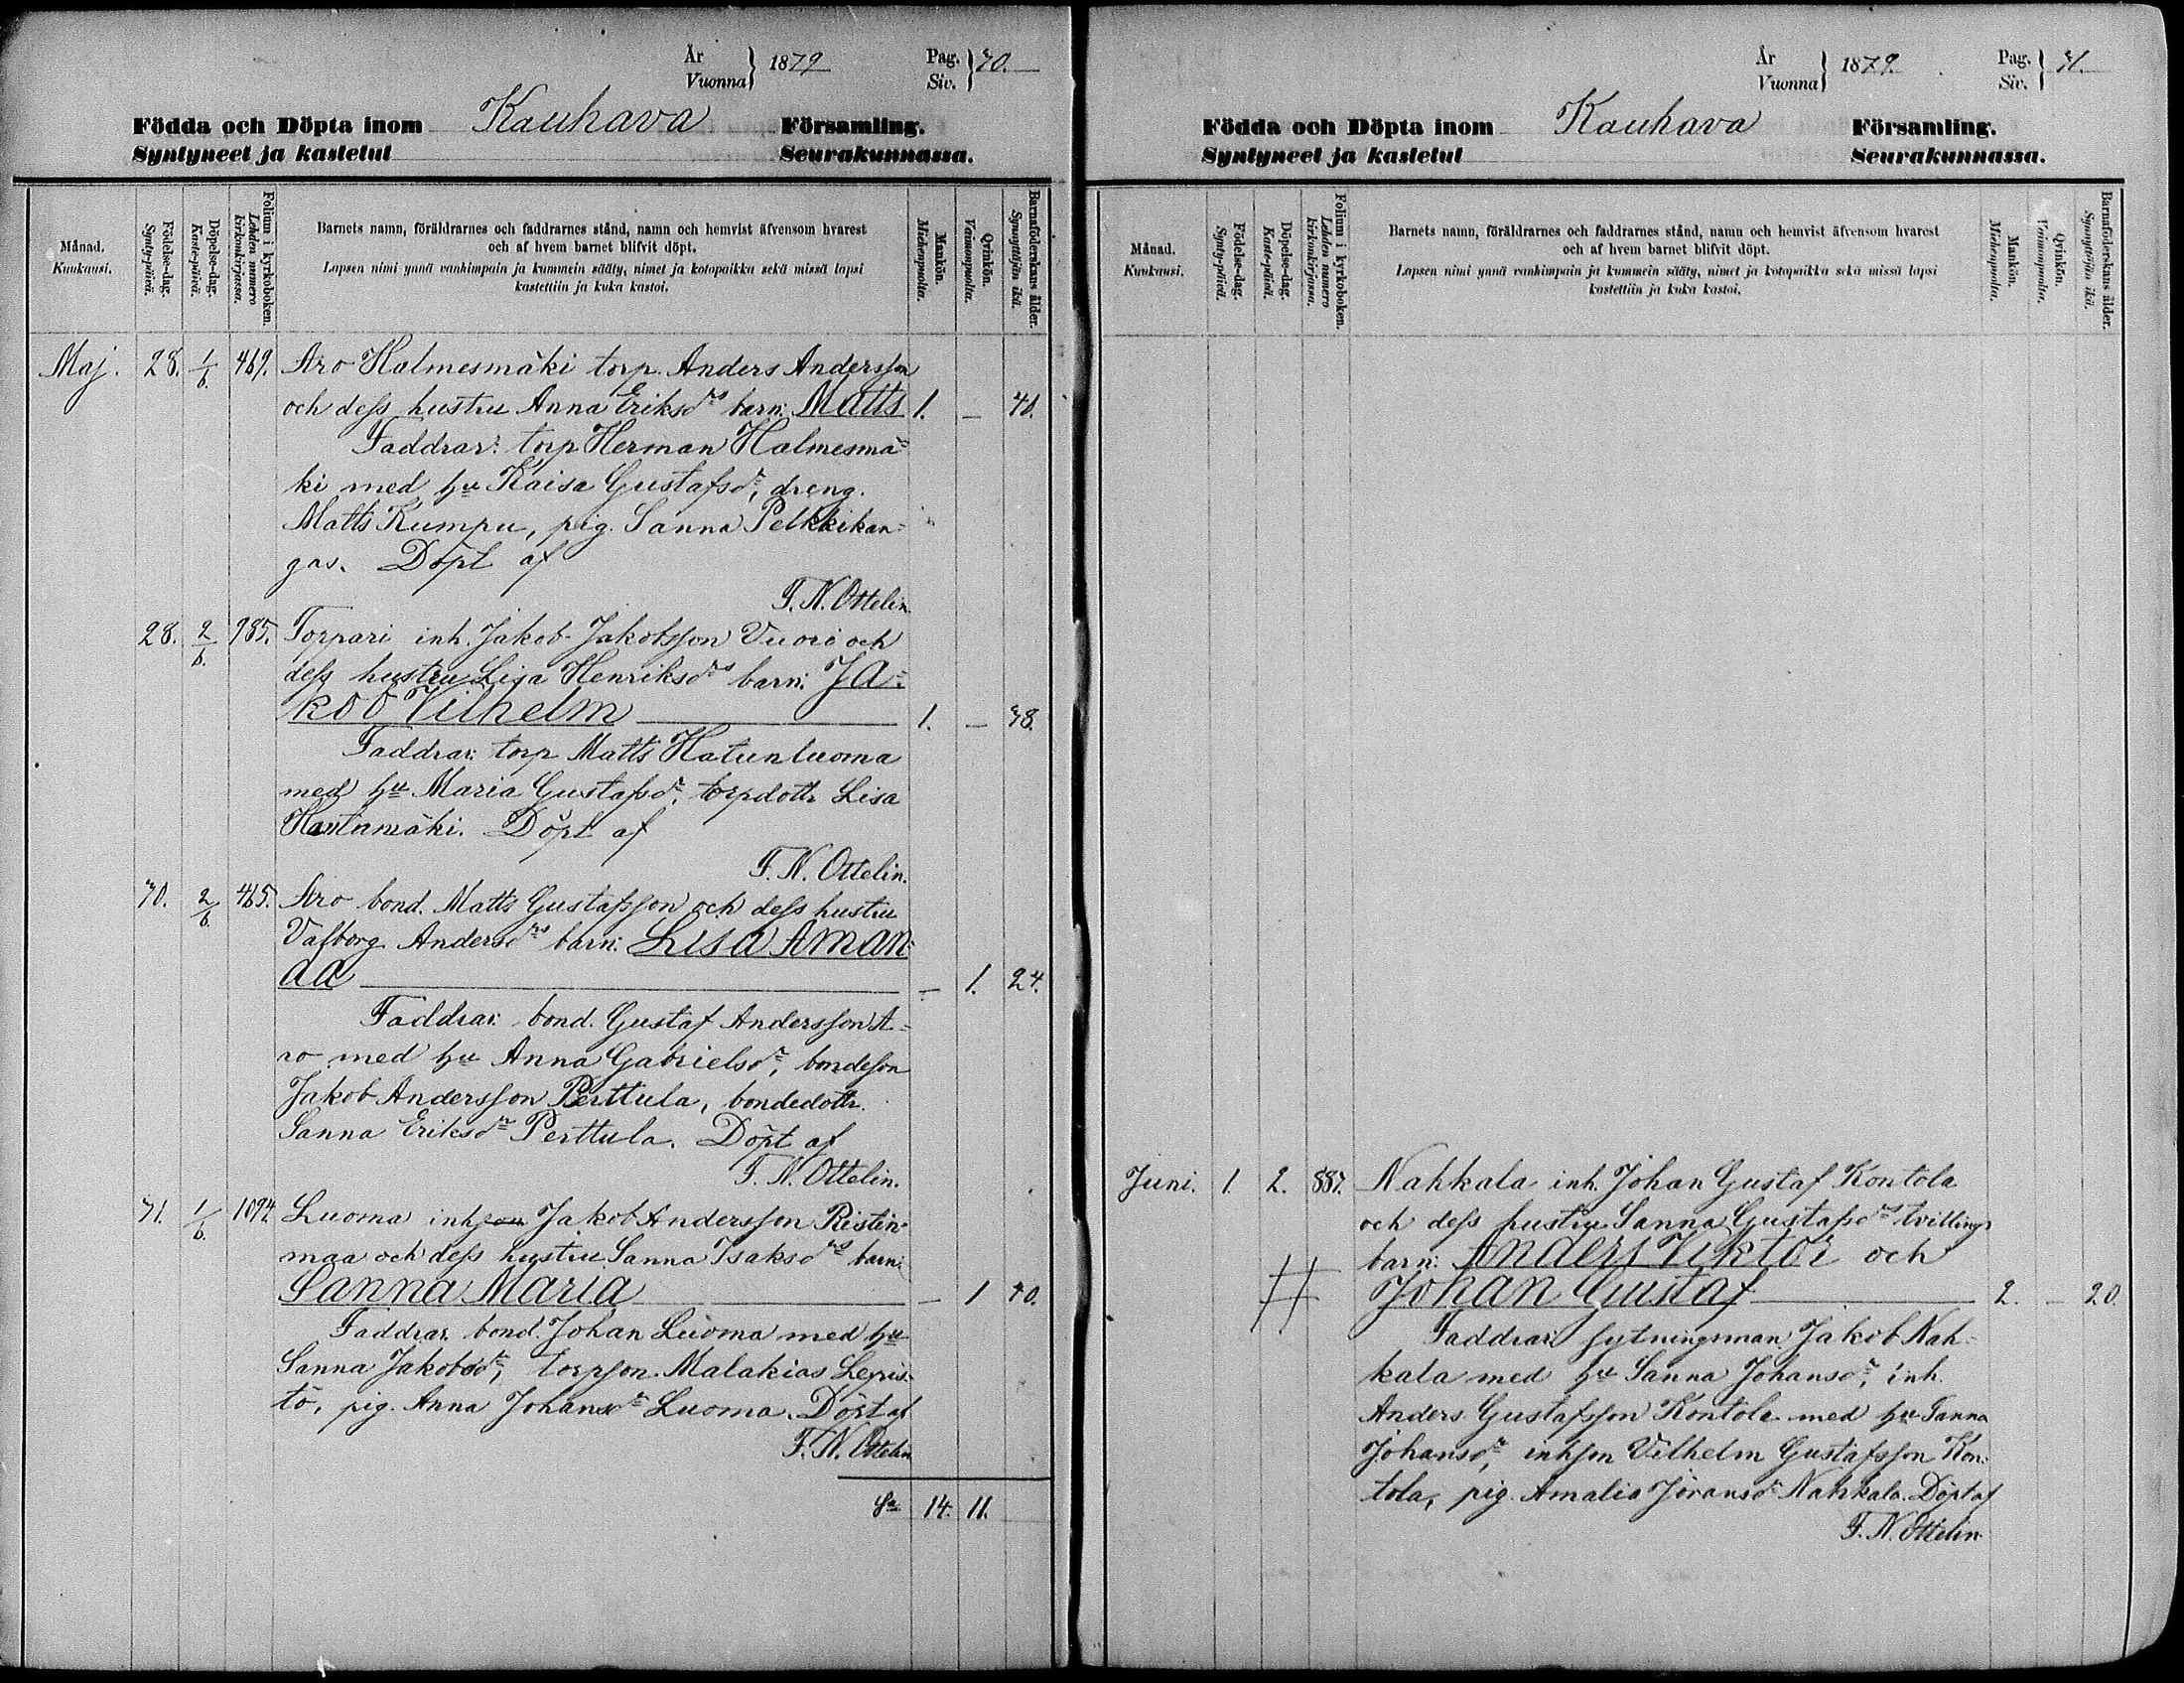 År
Vuonna } 1879
Pag.
Siv. } 30.
Födda och Döpta inom Kauhava Församling.
Syntyneet ja kastetut Seurakunnassa.
Månad.
Kuukausi.
Födelse-dag.
Synty-päivä.
Döpelse-dag.
Kaste-päivä.
Folium i kyrkoboken.
Lehden numero
kirkonkirjassa.
Barnets namn, föräldrarnes och faddrarnes stånd, namn och hemvist äfvensom hvarest
och af hvem barnet blifvit döpt.
Lapsen nimi ynnä vanhimpain ja kummein sääty, nimet ja kotopaikka sekä missä lapsi
kastettiin ja kuka kastoi.
Mankön.
Miehenpuolta.
Qvinkön.
Vaimonpuolta.
Barnaföderskans ålder.
Synnyttäjän ikä.
Maj. 28. 1/6. 469. Aro Halmesmäki torp. Anders Andersson
och dess hustru Anna Eriksdrs barn: Matts 1. — 40.
Faddrar: torp Herman Halmesmä=
ki med hu Kaisa Gustafsdr, dreng.
Matts Kumpu, pig. Sanna Pelkkikan=
gas. Döpt af
F. N. Ottelin.
28. 2/6. 985. Torpari inh. Jakob Jakobsson Vuori och
dess hustru Lisa Henriksdrs barn: Ja=
kob Vilhelm 1. — 38.
Faddrar: torp Matts Hatunluoma
med hu Maria Gustafsdr, torpdottr Lisa
Hautamäki. Döpt af
F. N. Ottelin.
30. 2/6. 465. Aro bond. Matts Gustafsson och dess hustru
Valborg Andersdrs barn: Lisa Aman=
da — 1. 24.
Faddrar: bond. Gustaf Andersson A=
ro med hu Anna Gabrielsdr, bondeson
Jakob Andersson Perttula, bondedottr.
Sanna Eriksdr Perttula. Döpt af
F. N. Ottelin.
31. 1/6. 1094. Luoma inh Jakob Andersson Ristin=
maa och dess hustru Sanna Isaksdrs barn:
Sanna Maria — 1 40.
Faddrar: bond. Johan Luoma med hu
Sanna Jakobsdr, torpson Malakias Leppis=
tö, pig. Anna Johansdr Luoma. Döpt af
F. N. Ottelin
Sa 14. 11.
År
Vuonna } 1879.
Pag.
Siv. } 31.
Födda och Döpta inom Kauhava Församling.
Syntyneet ja kastetut Seurakunnassa.
Månad.
Kuukausi.
Födelse-dag.
Synty-päivä.
Döpelse-dag.
Kaste-päivä.
Folium i kyrkoboken.
Lehden numero
kirkonkirjassa.
Barnets namn, föräldrarnes och faddrarnes stånd, namn och hemvist äfvensom hvarest
och af hvem barnet blifvit döpt.
Lapsen nimi ynnä vanhimpain ja kummein sääty, nimet ja kotopaikka sekä missä lapsi
kastettiin ja kuka kastoi.
Mankön.
Miehenpuolta.
Qvinkön.
Vaimonpuolta.
Barnaföderskans ålder.
Synnyttäjän ikä.
Juni. 1. 2. 887. Nahkala inh. Johan Gustaf Kontola
och dess hustru Sanna Gustafsdrs tvillings
barn: Anders Viktor och
Johan Gustaf 2. — 20.
Faddrar: sytningsman Jakob Nah=
kala med hu Sanna Johansdr, inh.
Anders Gustafsson Kontola med hu Sanna
Johansdr, inhson Vilhelm Gustafsson Kon=
tola, pig. Amalia Jöransdr Nahkala. Döpt af
F. N. Ottelin.